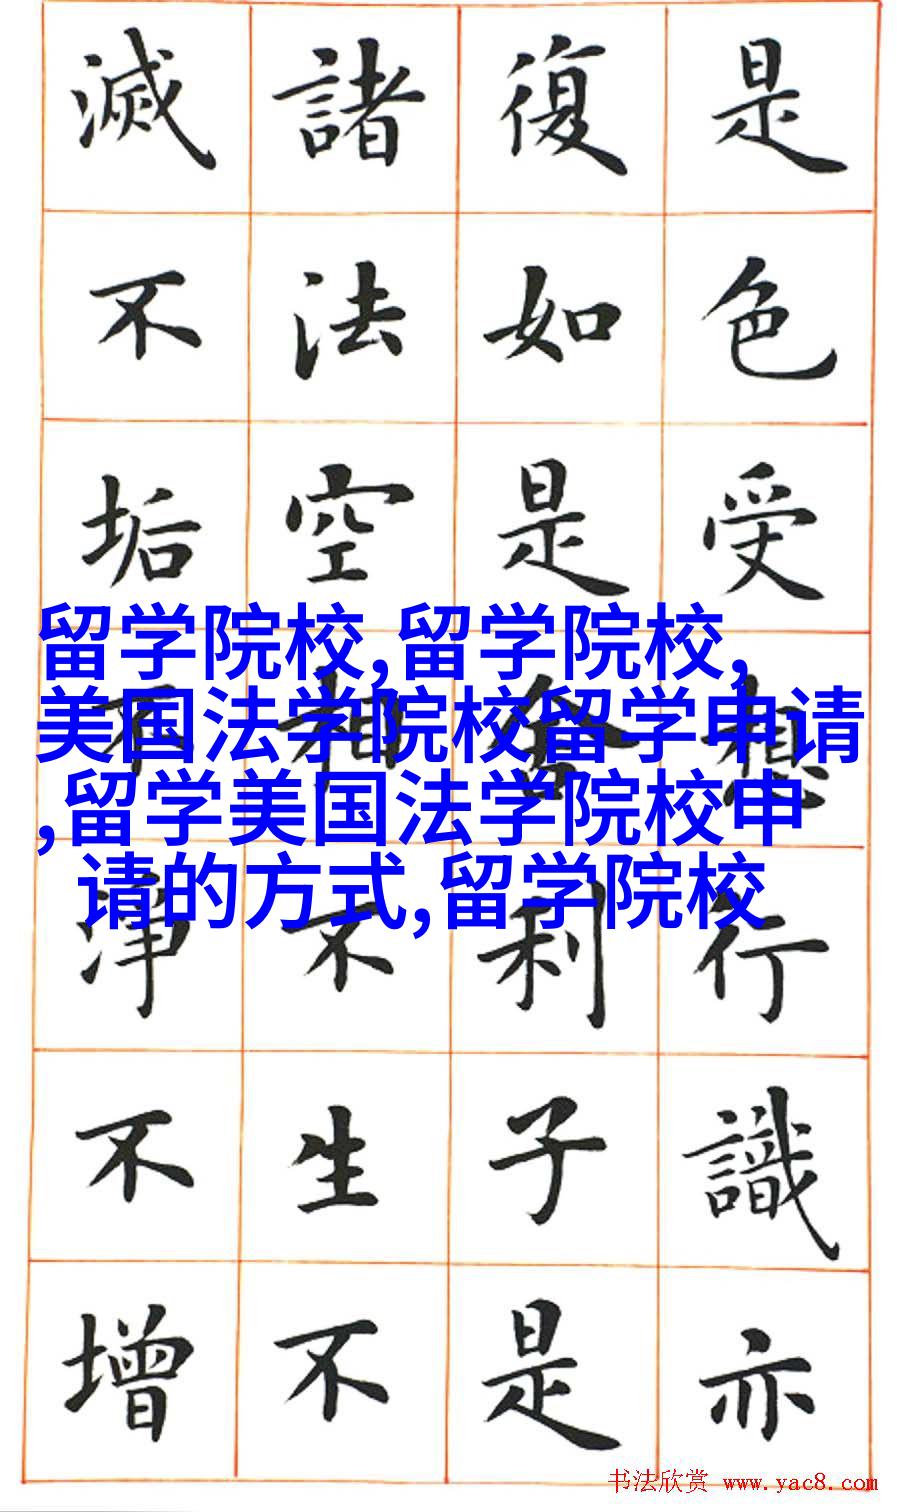 是色受想行識亦
復如是舍利子是
諸法空相不生不
滅不垢不淨不增
留学院校,留学院校,
美国法学院校留学申请
,留学美国法学院校申
请的方式,留学院校
书法欣赏 www.yac8.com